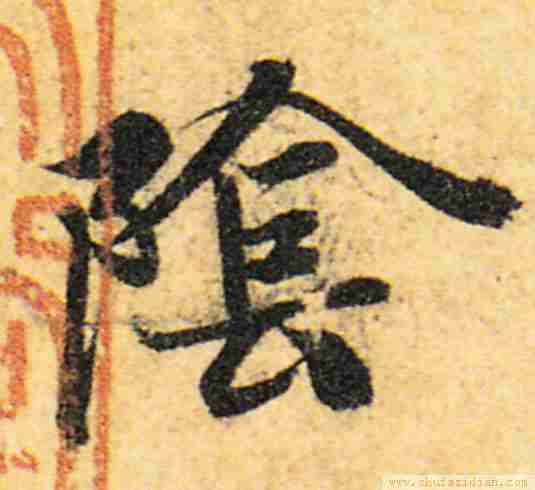 陰
www.shufazidian.com